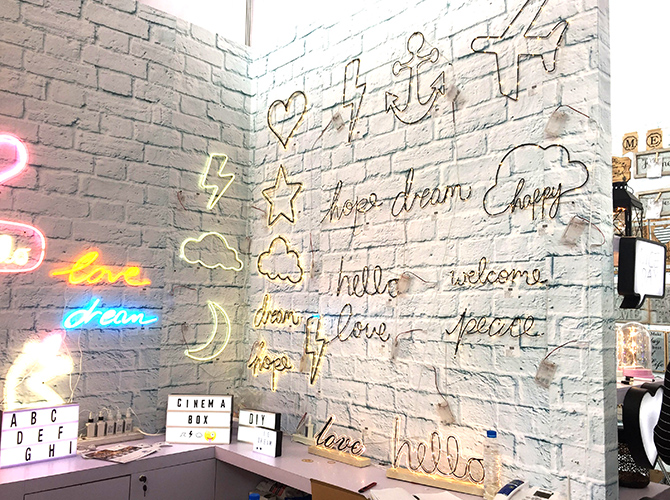 love
dream
hope dream
happy
hello
welcome
dream
love
peace
hope
love
hello
A B C
D E F
G H I
CINEMA
BOX
DIY
M E